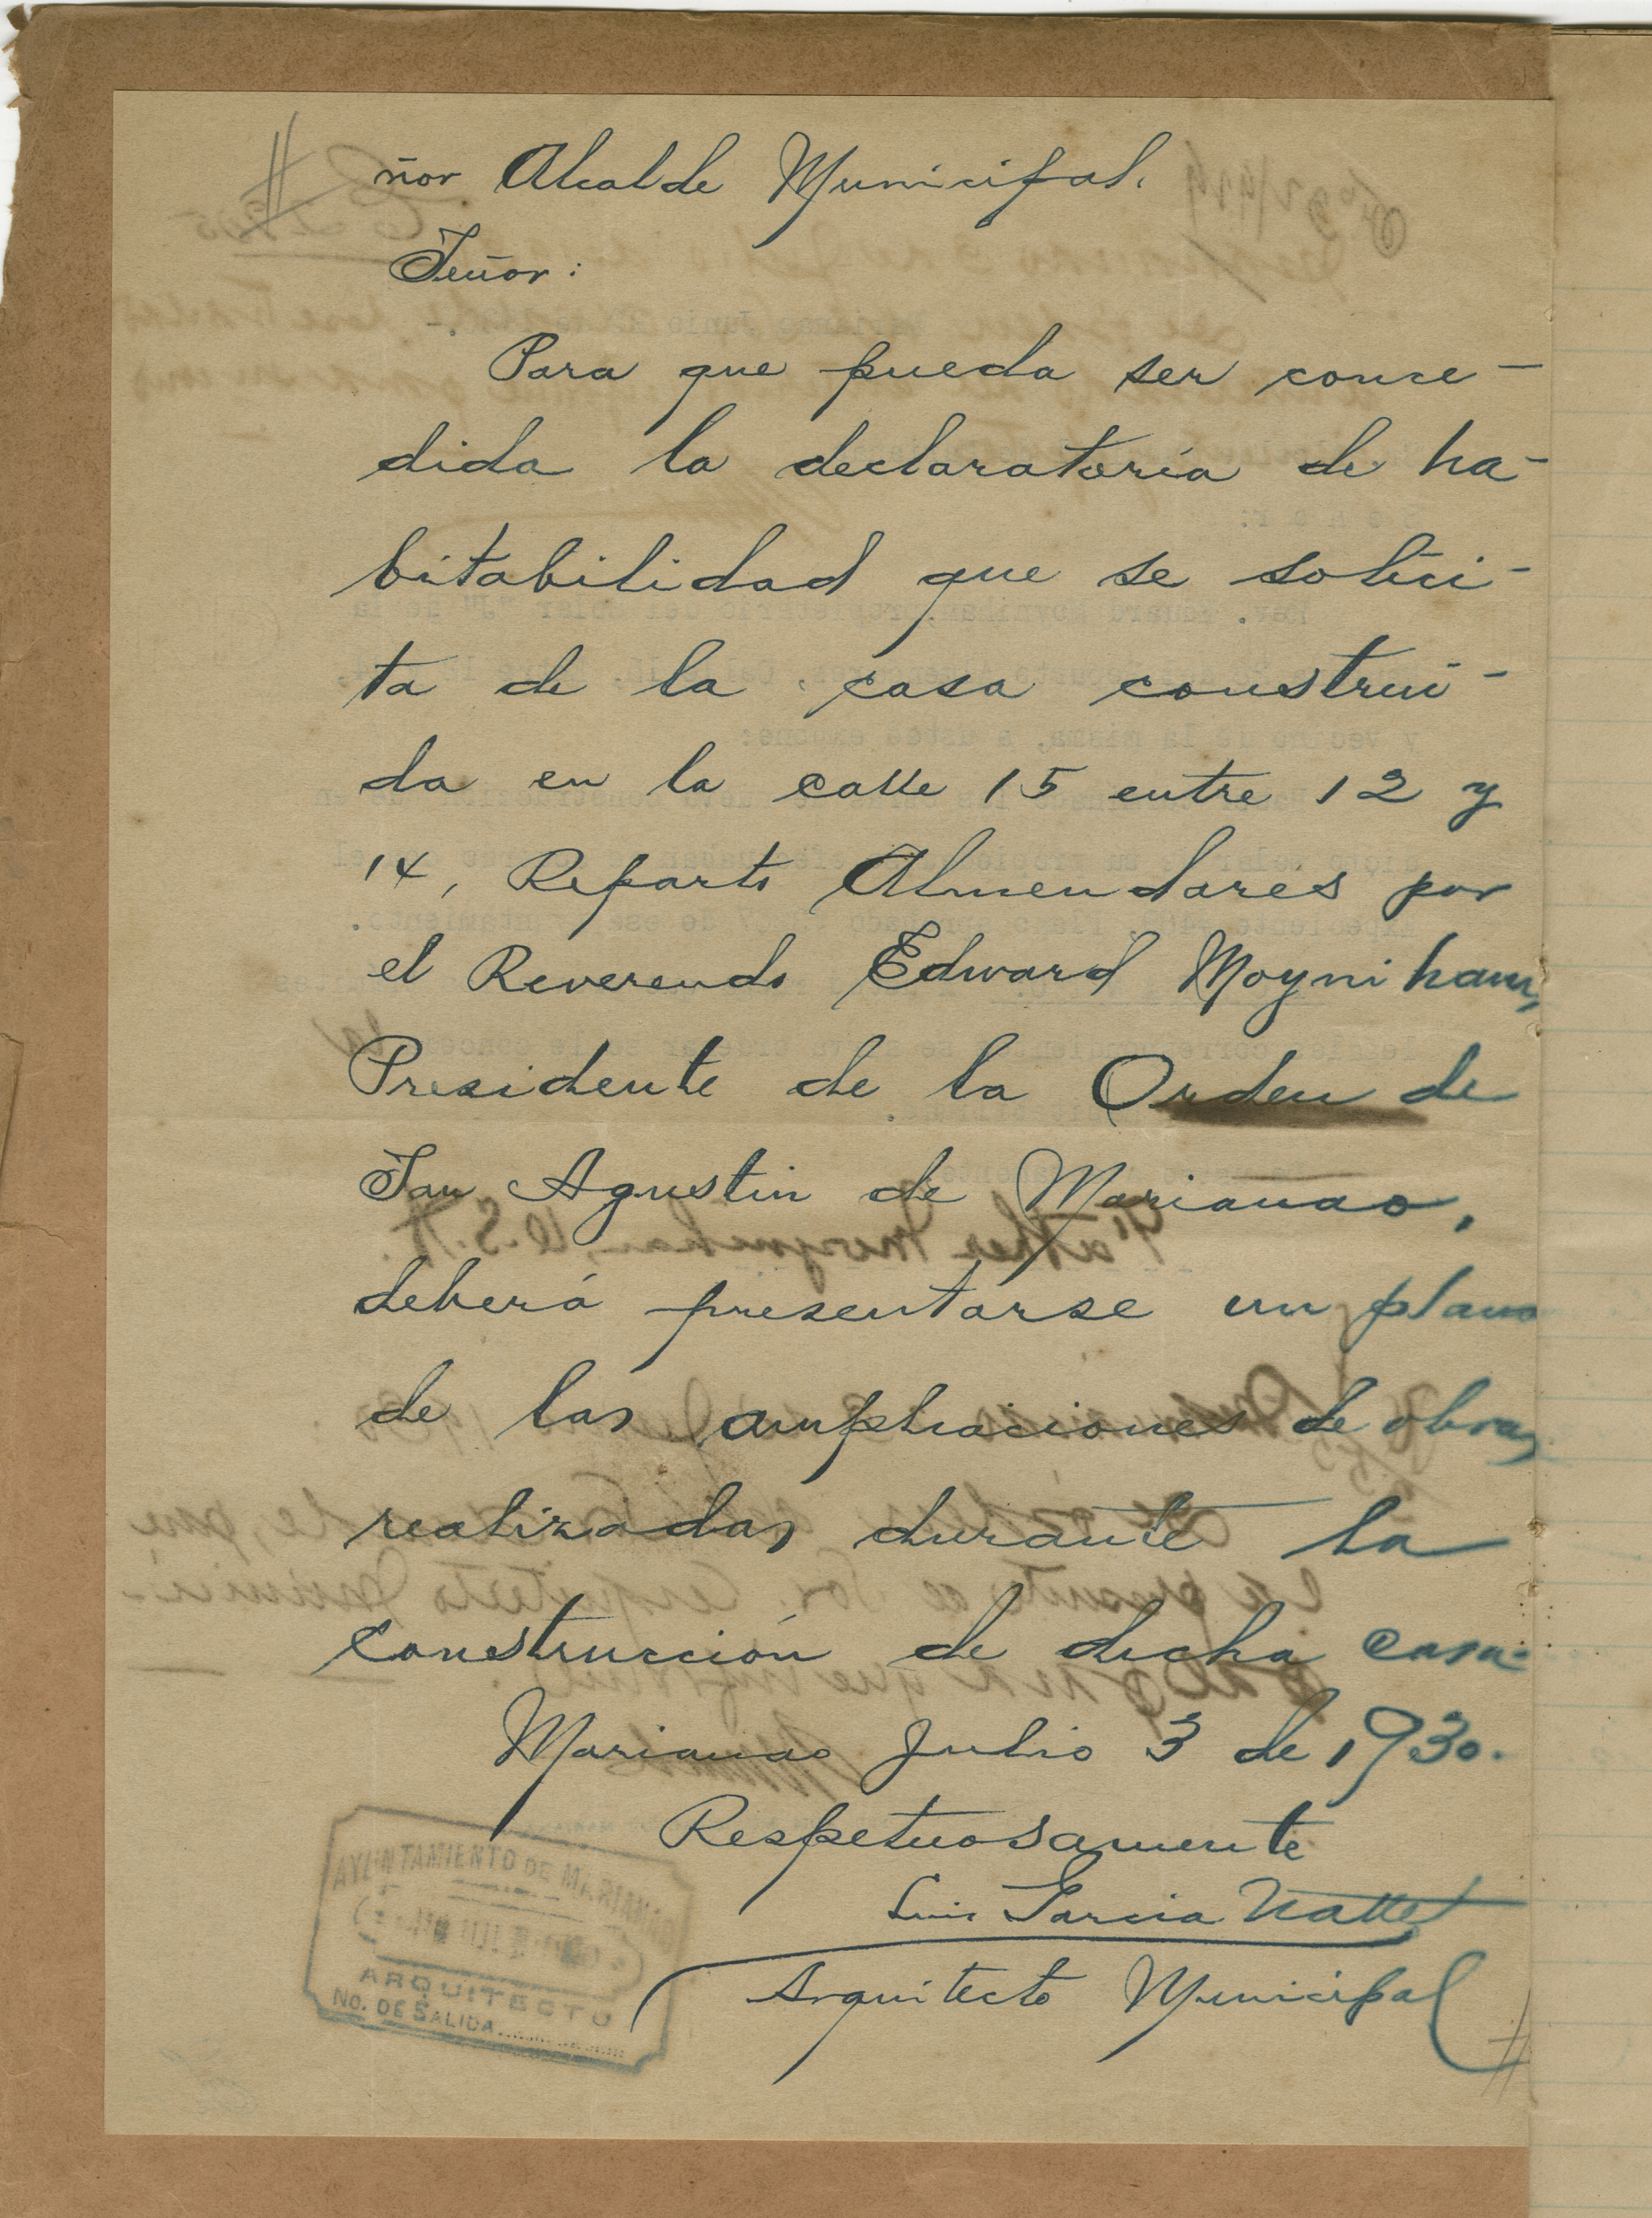 ñor Alcalde Municipal.
Señor:
Para que pueda ser conce-
dida la declaratoria de ha-
bitabilidad que se solici-
ta de la casa construi-
da en la calle 15 entre 12 y
14, Reparto Almendares por
el Reverendo Edward Moynihan,
Presidente de la Orden de
San Agustin de Marianao,
deberá presentarse un plano
de las ampliaciones de obras
realizadas durante la
construcción de dicha casa.
Marianao Julio 3 de 1930.
Respetuosamente
Luis Garcia
Arquitecto Municipal
AYUNTAMIENTO DE MARIANAO
ARQUITECTO
No. DE SALIDA